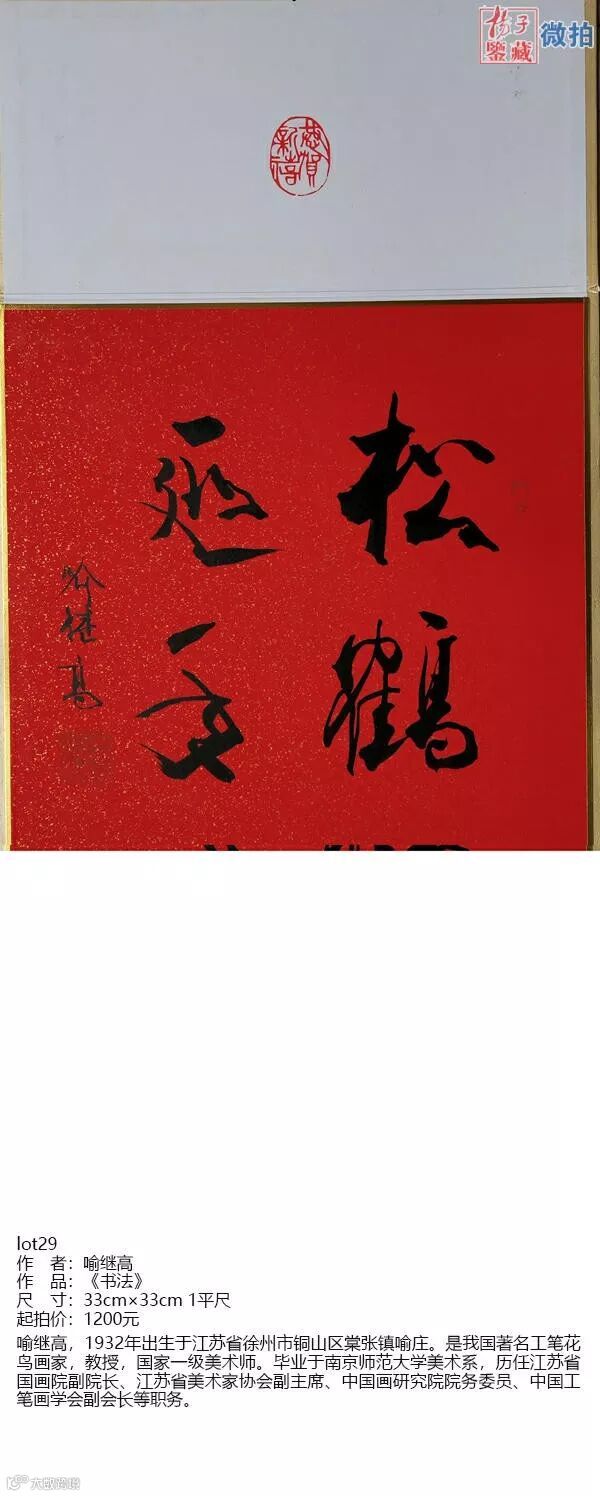 揚子
鑒藏
微拍
恭賀
新禧
松鶴
延年
喻继高
lot29
作 者：喻继高
作 品：《书法》
尺 寸：33cm×33cm 1平尺
起拍价：1200元
喻继高，1932年出生于江苏省徐州市铜山区棠张镇喻庄。是我国著名工笔花
鸟画家，教授，国家一级美术师。毕业于南京师范大学美术系，历任江苏省
国画院副院长、江苏省美术家协会副主席、中国画研究院院务委员、中国工
笔画学会副会长等职务。
大数跨境